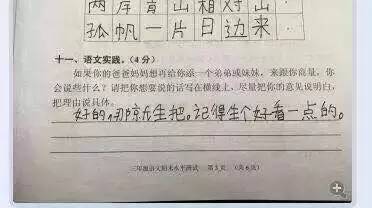 两岸青山相对出
孤帆一片日边来
十一、语文实践。（4分）
如果你的爸爸妈妈想再给你添一个弟弟或妹妹，来跟你商量，你
会说些什么？请把你想要说的话写在横线上，尽量把你的意见说明白，
把理由说具体。
好的,那就生把。记得生个好看一点的。
三年级语文期末水平测试 第5页（共6页）